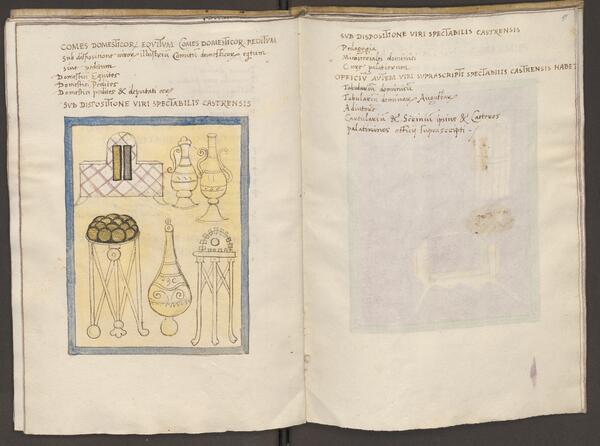 COMES DOMESTICOR. EQUITUM COMES DOMESTICOR. PEDITUM
Sub dispositione viror. illustrium Comitum domesticor. equitum
sive peditum
Domestici Equites
Domestici Pedites
Domestici pedites & deputati eor.
SUB DISPOSITIONE VIRI SPECTABILIS CASTRENSIS
SUB DISPOSITIONE VIRI SPECTABILIS CASTRENSIS
Pedagogia
Ministeriales dominici
Curae palatiorum
OFFICIU AUTEM VIRI SUPRASCRIPTI SPECTABILIS CASTRENSIS HABET
Tabularium dominicu
Tabularium dominar. Augustar.
Adiutore
Cartularium & Scrinium ipsius & Caeteros
palatininos officij suprascripti.